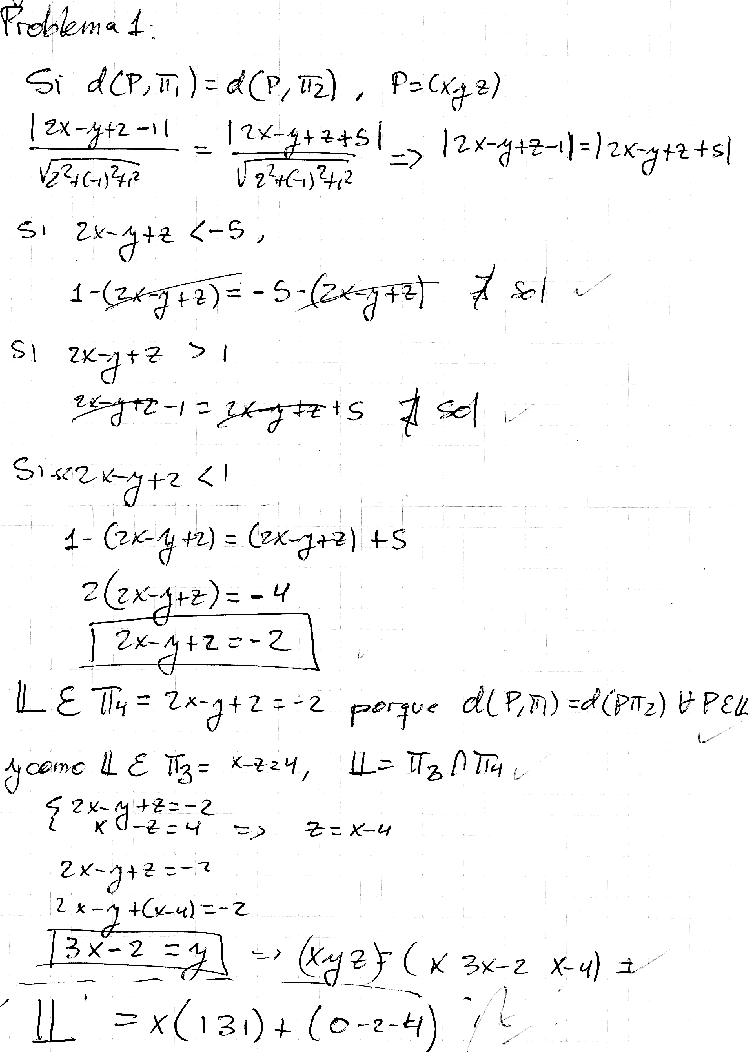 Problema 1:
Si d(P,π₁) = d(P,π₂), P=(x y z)
|2x-y+z-1| / √2²+(-1)²+1² = |2x-y+z+5| / √2²+(-1)²+1² => |2x-y+z-1|=|2x-y+z+5|
Si 2x-y+z <-5,
1-(2x-y+z)=-5-(2x-y+z) ∄ sol ✓
Si 2x-y+z > 1
2x-y+z-1 = 2x-y+z+5 ∄ sol ✓
Si 2x-y+z < 1
1-(2x-y+z) = (2x-y+z) +5
2(2x-y+z) = -4
2x-y+z=-2
𝕃 ε π₄ = 2x-y+z=-2 porque d(P,π₁)=d(Pπ₂) ∀ P ε 𝕃 ✓
y como 𝕃 ε π₃ = x-z=4, 𝕃 = π₃ ∩ π₄ ✓
{ 2x-y+z=-2
x -z=4 => z=x-4
2x-y+z=-2
2x-y+(x-4)=-2
3x-2 = y => (x y z)=(x 3x-2 x-4) =
𝕃 = x(1 3 1) + (0 -2 -4)